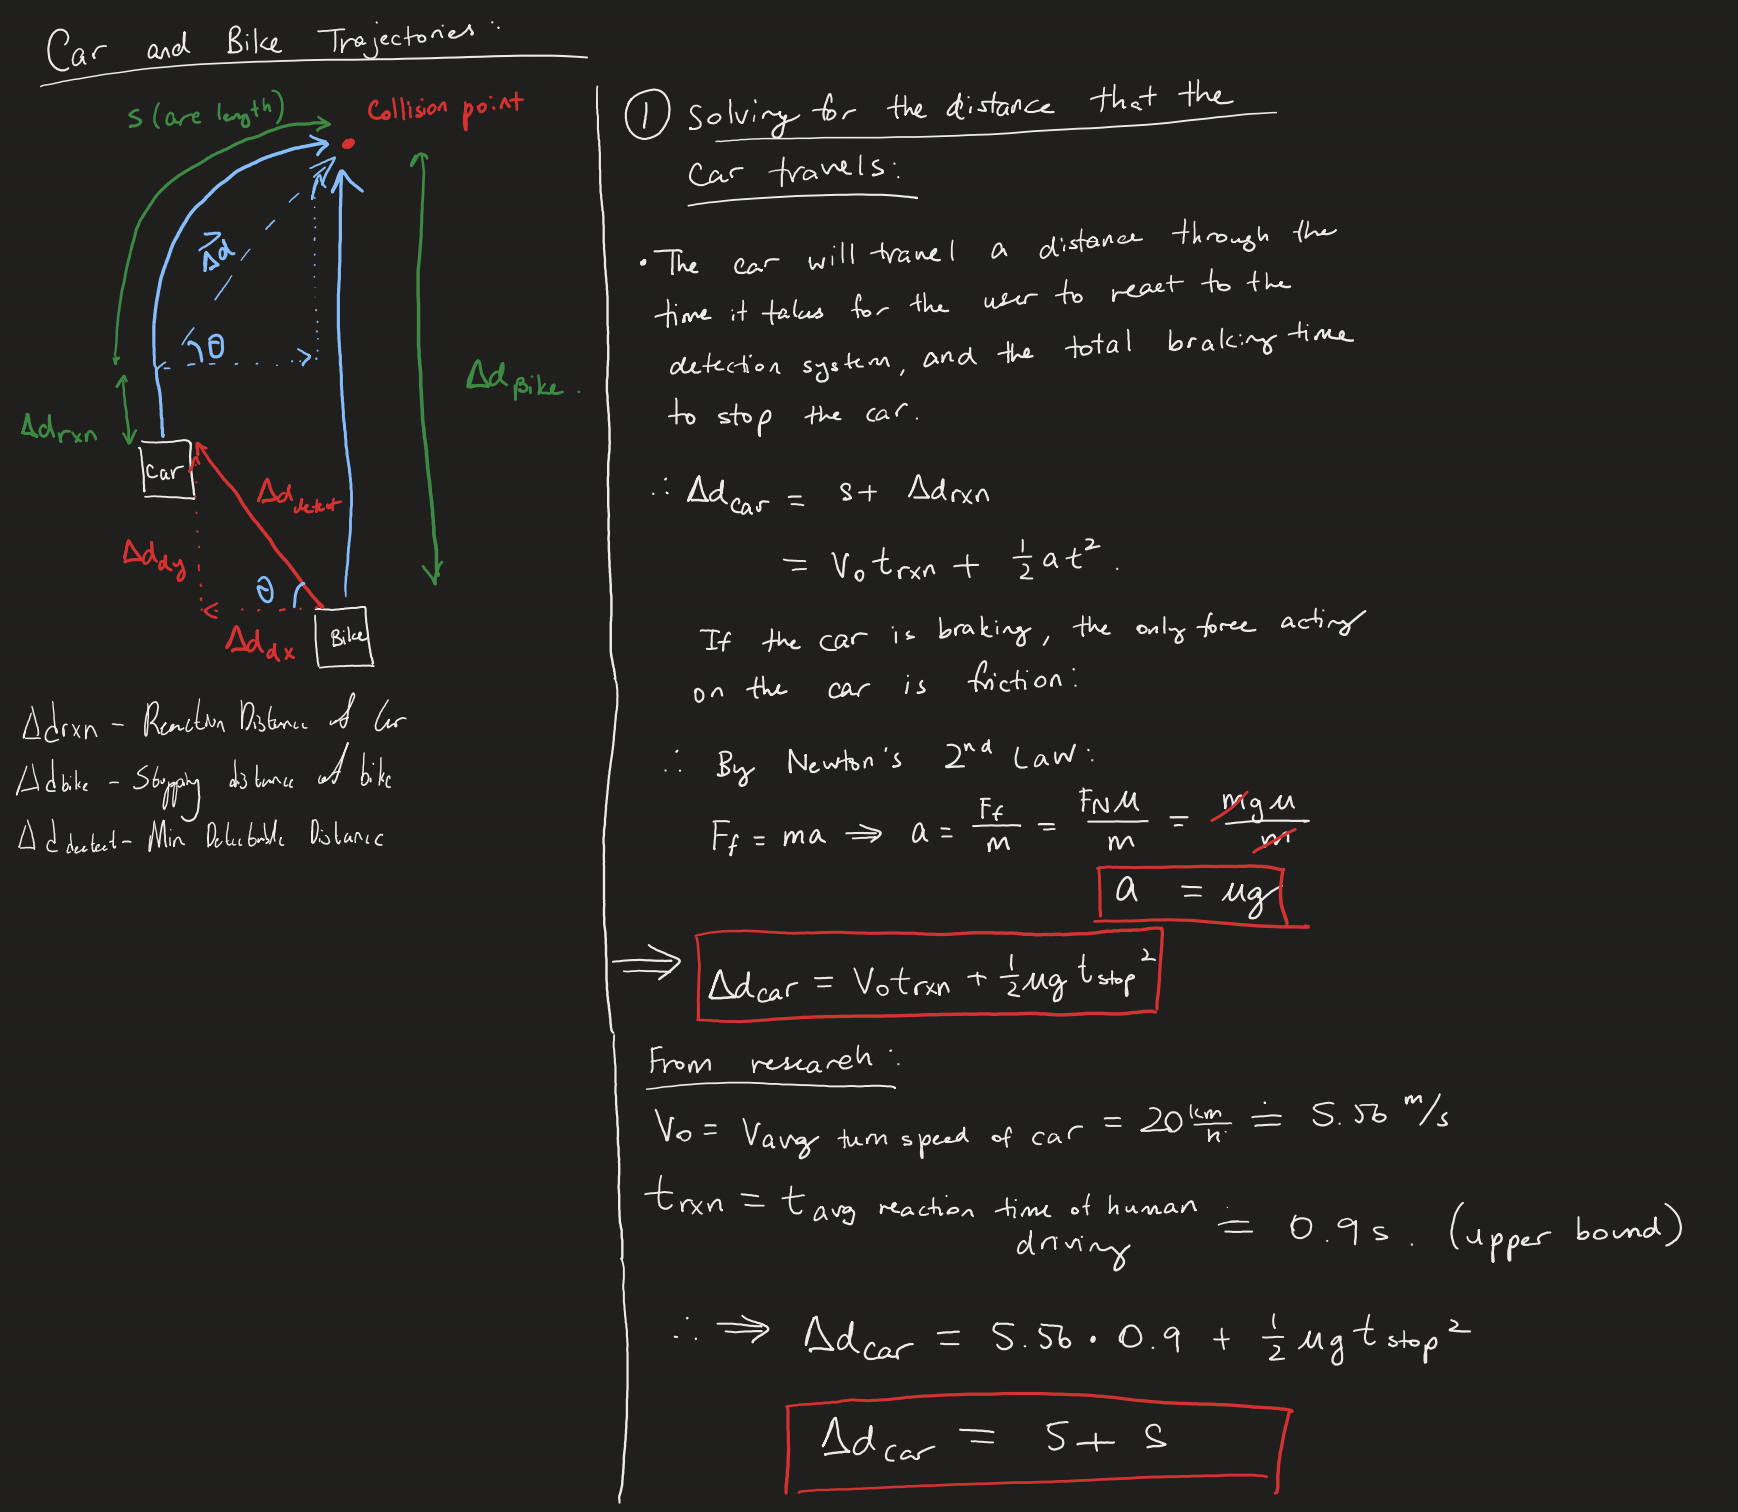 Car and Bike Trajectories:
s (arc length)
Collision point
Δd
θ
Δd Bike.
Δdrxn
Car
Δd detect
Δd dy
θ
Δd dx
Bike
Δdrxn - Reaction Distance of Car
Δd bike - Stopping distance of bike
Δd deetect - Min Detectable Distance
① Solving for the distance that the
car travels:
• The car will travel a distance through the
time it takes for the user to react to the
detection system, and the total braking time
to stop the car.
∴ Δd car = s + Δdrxn
= V₀ t rxn + 1/2 a t².
If the car is braking, the only force acting
on the car is friction:
∴ By Newton's 2nd Law:
Ff = ma ⇒ a = Ff/m = FNμ/m = mgμ/m
a = μg
⇒ Δd car = V₀ t rxn + 1/2 μg t stop²
From research:
V₀ = V avg turn speed of car = 20 km/h ≐ 5.56 m/s
t rxn = t avg reaction time of human driving = 0.9 s. (upper bound)
∴ ⇒ Δd car = 5.56 · 0.9 + 1/2 μg t stop²
Δd car = 5 + s